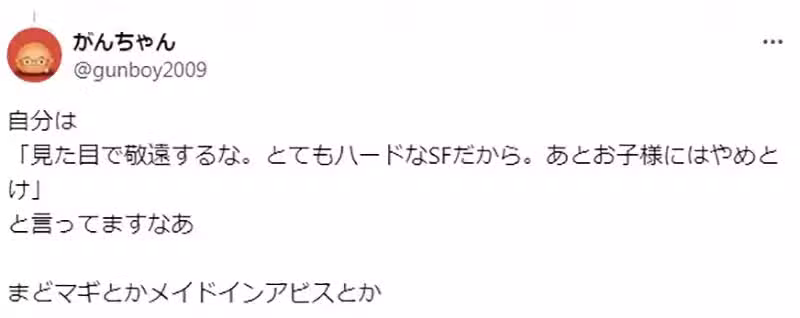 がんちゃん
@gunboy2009
自分は
「見た目で敬遠するな。とてもハードなSFだから。あとお子様にはやめと
け」
と言ってますなあ
まどマギとかメイドインアビスとか